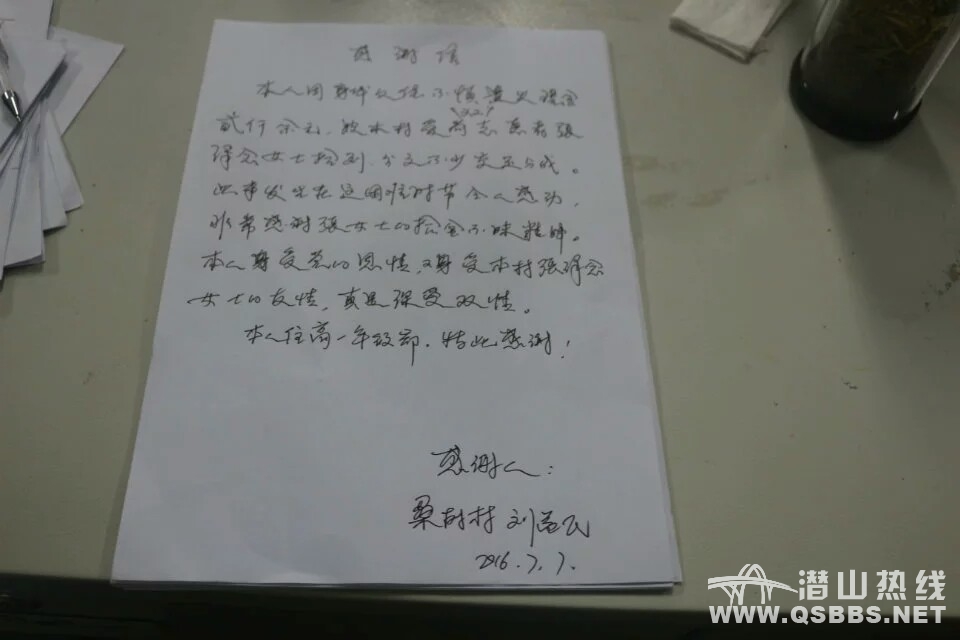 感谢信
本人因身体欠佳不慎遗失现金
(327)
贰仟余元,被本村受灾志愿者張
泽会女士拾到,分文不少交还与我。
此事发生在这困难时节令人感动,
非常感谢張女士的拾金不昧精神。
本人身受党的恩情,又身受本村張泽会
女士的友情,真是深受双情。
本人住高一年级部,特此感谢!
感谢人:
桑树村 刘益民
2016.7.7.
潜山热线
WWW.QSBBS.NET